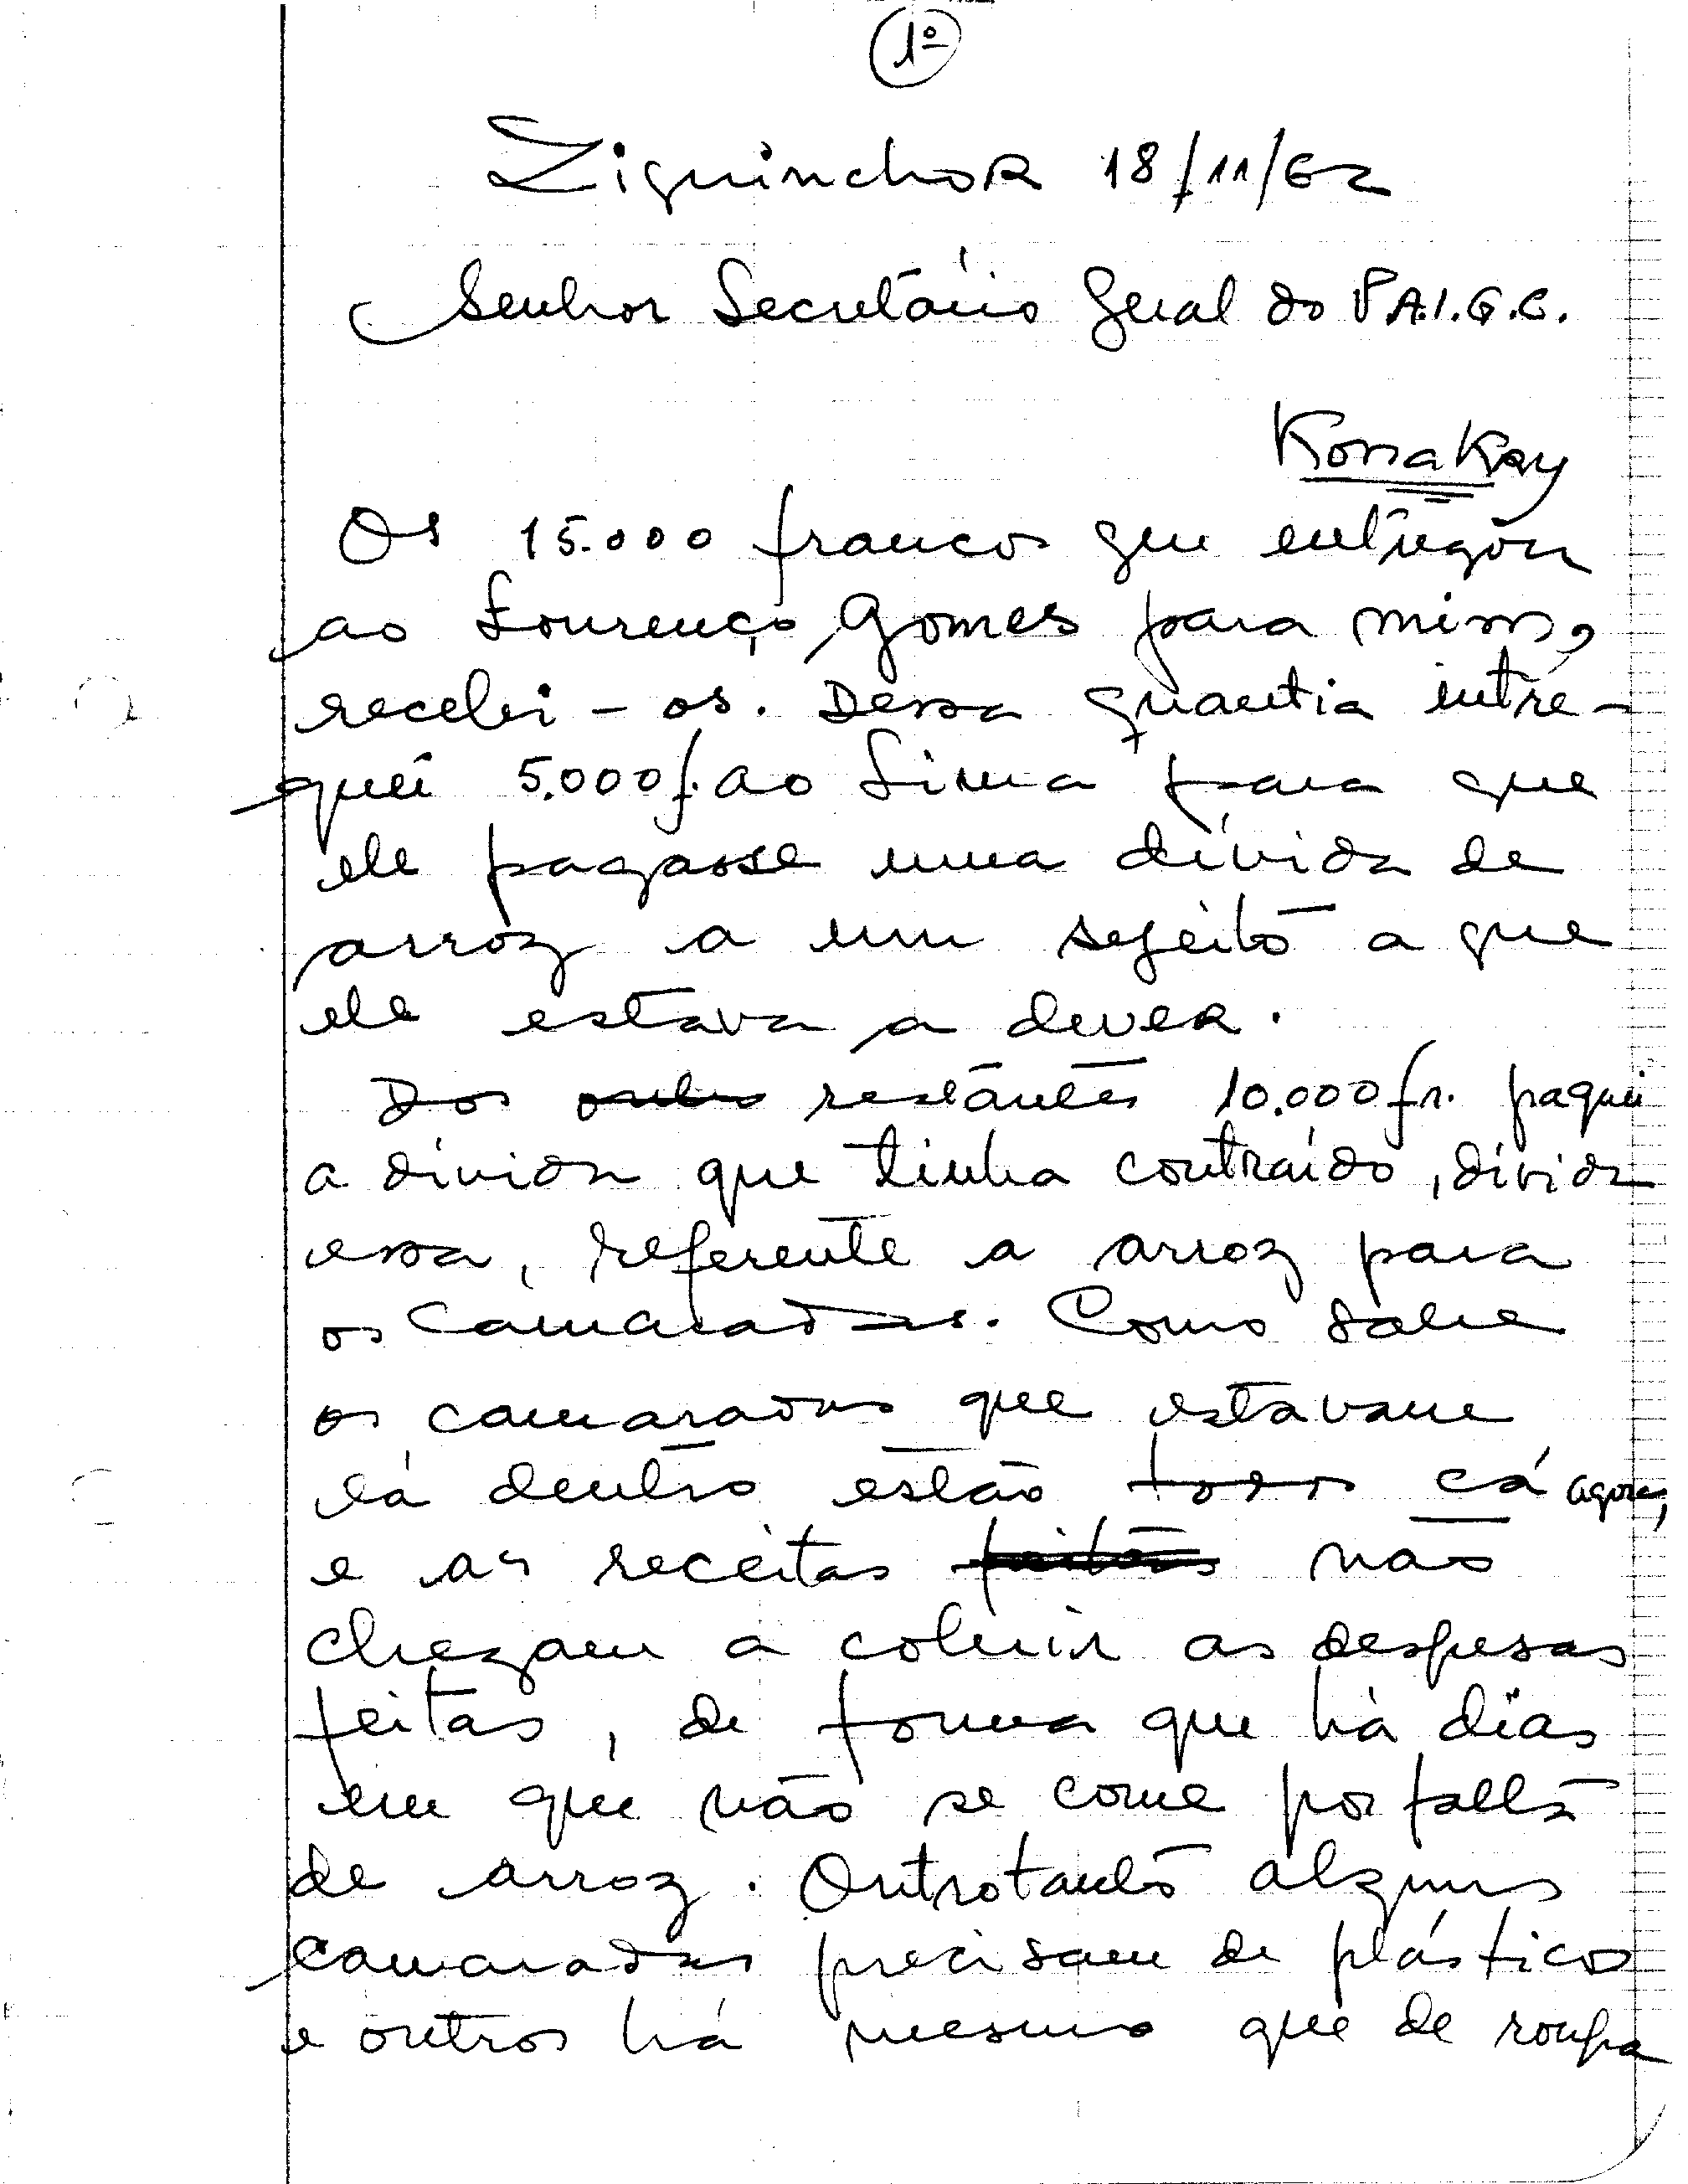 1º
Ziguinchor 18/11/62
Senhor Secretário Geral do P.A.I.G.C.
Konakry
Os 15.000 francos que entregou
ao Lourenço Gomes para mim,
recebi-os. Dessa quantia entre-
guei 5.000 f. ao Lima para que
ele pagasse uma dívida de
arroz a um sujeito a que
ele estava a dever.
Dos outros restantes 10.000 fr. paguei
a dívida que tinha contraído, dívida
essa, referente a arroz para
os camaradas. Como sabe
os camaradas que estavam
lá dentro estão todos cá agora,
e as receitas feitas não
chegam a cobrir as despesas
feitas, de forma que há dias
em que não se come por falta
de arroz. Outrotanto alguns
camaradas precisam de plásticos
e outros há mesmo que de roupa